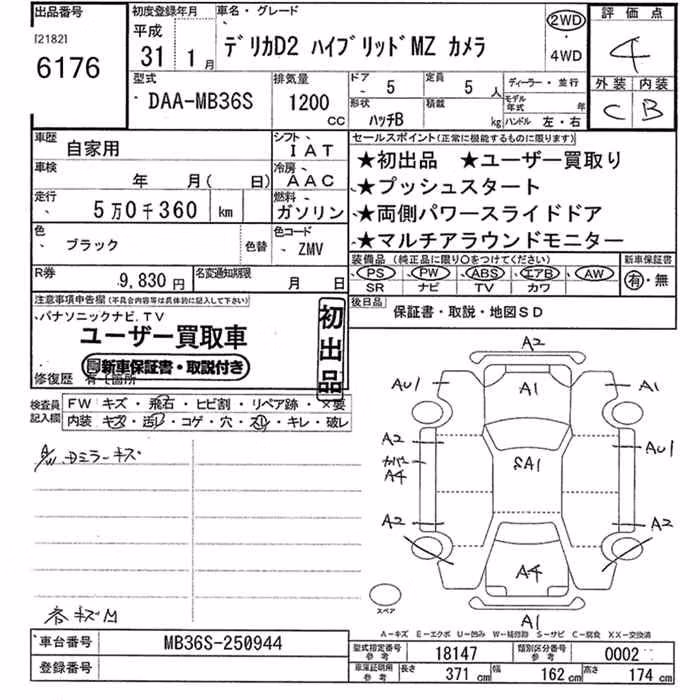 出品番号
[2182]
6176
初度登録年月
平成
31 1月
車名・グレード
デリカD2 ハイブリッドMZ カメラ
2WD
・
4WD
評価点
4
外装 内装
C B
型式
DAA-MB36S
排気量
1200
CC
ドア
5
定員
5 人
形状
ハッチB
積載
kg
ディーラー・並行
モデル年式 年
ハンドル 左・右
車歴
自家用
シフト
IAT
車検
年 月( 日)
冷房
AAC
走行
5万0千360 km
燃料
ガソリン
色
ブラック
色替
色コード
ZMV
R券
9,830 円
名変通知期限
月 日
セールスポイント(正常に機能するものに限ります)
★初出品 ★ユーザー買取り
★プッシュスタート
★両側パワースライドドア
★マルチアラウンドモニター
装備品 (純正品に限り○をつけてください)
PS PW ABS エアB AW
SR ナビ TV カワ
新車保証書
有・無
後日品
保証書・取説・地図SD
注意事項申告欄(不具合内容等は具体的に記入して下さい)
パナソニックナビ.TV
ユーザー買取車
新車保証書・取説付き
初出品
修復歴 有 箇所
検査員記入欄
FW キズ・飛石・ヒビ割・リペア跡・×要
内装 キズ・汚レ・コゲ・穴・スレ・キレ・破レ
Dミラーキズ
各キズM
A2
AU1
A1
A1
A2
A4
SA1
AU1
A2
A2
A4
A1
スペア
A-キズ E-エクボ U-凹み W-補修跡 S-サビ C-腐食 XX-交換済
車台番号
MB36S-250944
登録番号
型式指定番号 参考
18147
類別区分番号 参考
0002
車庫証明用 参考
長さ 371 cm
幅 162 cm
高さ 174 cm